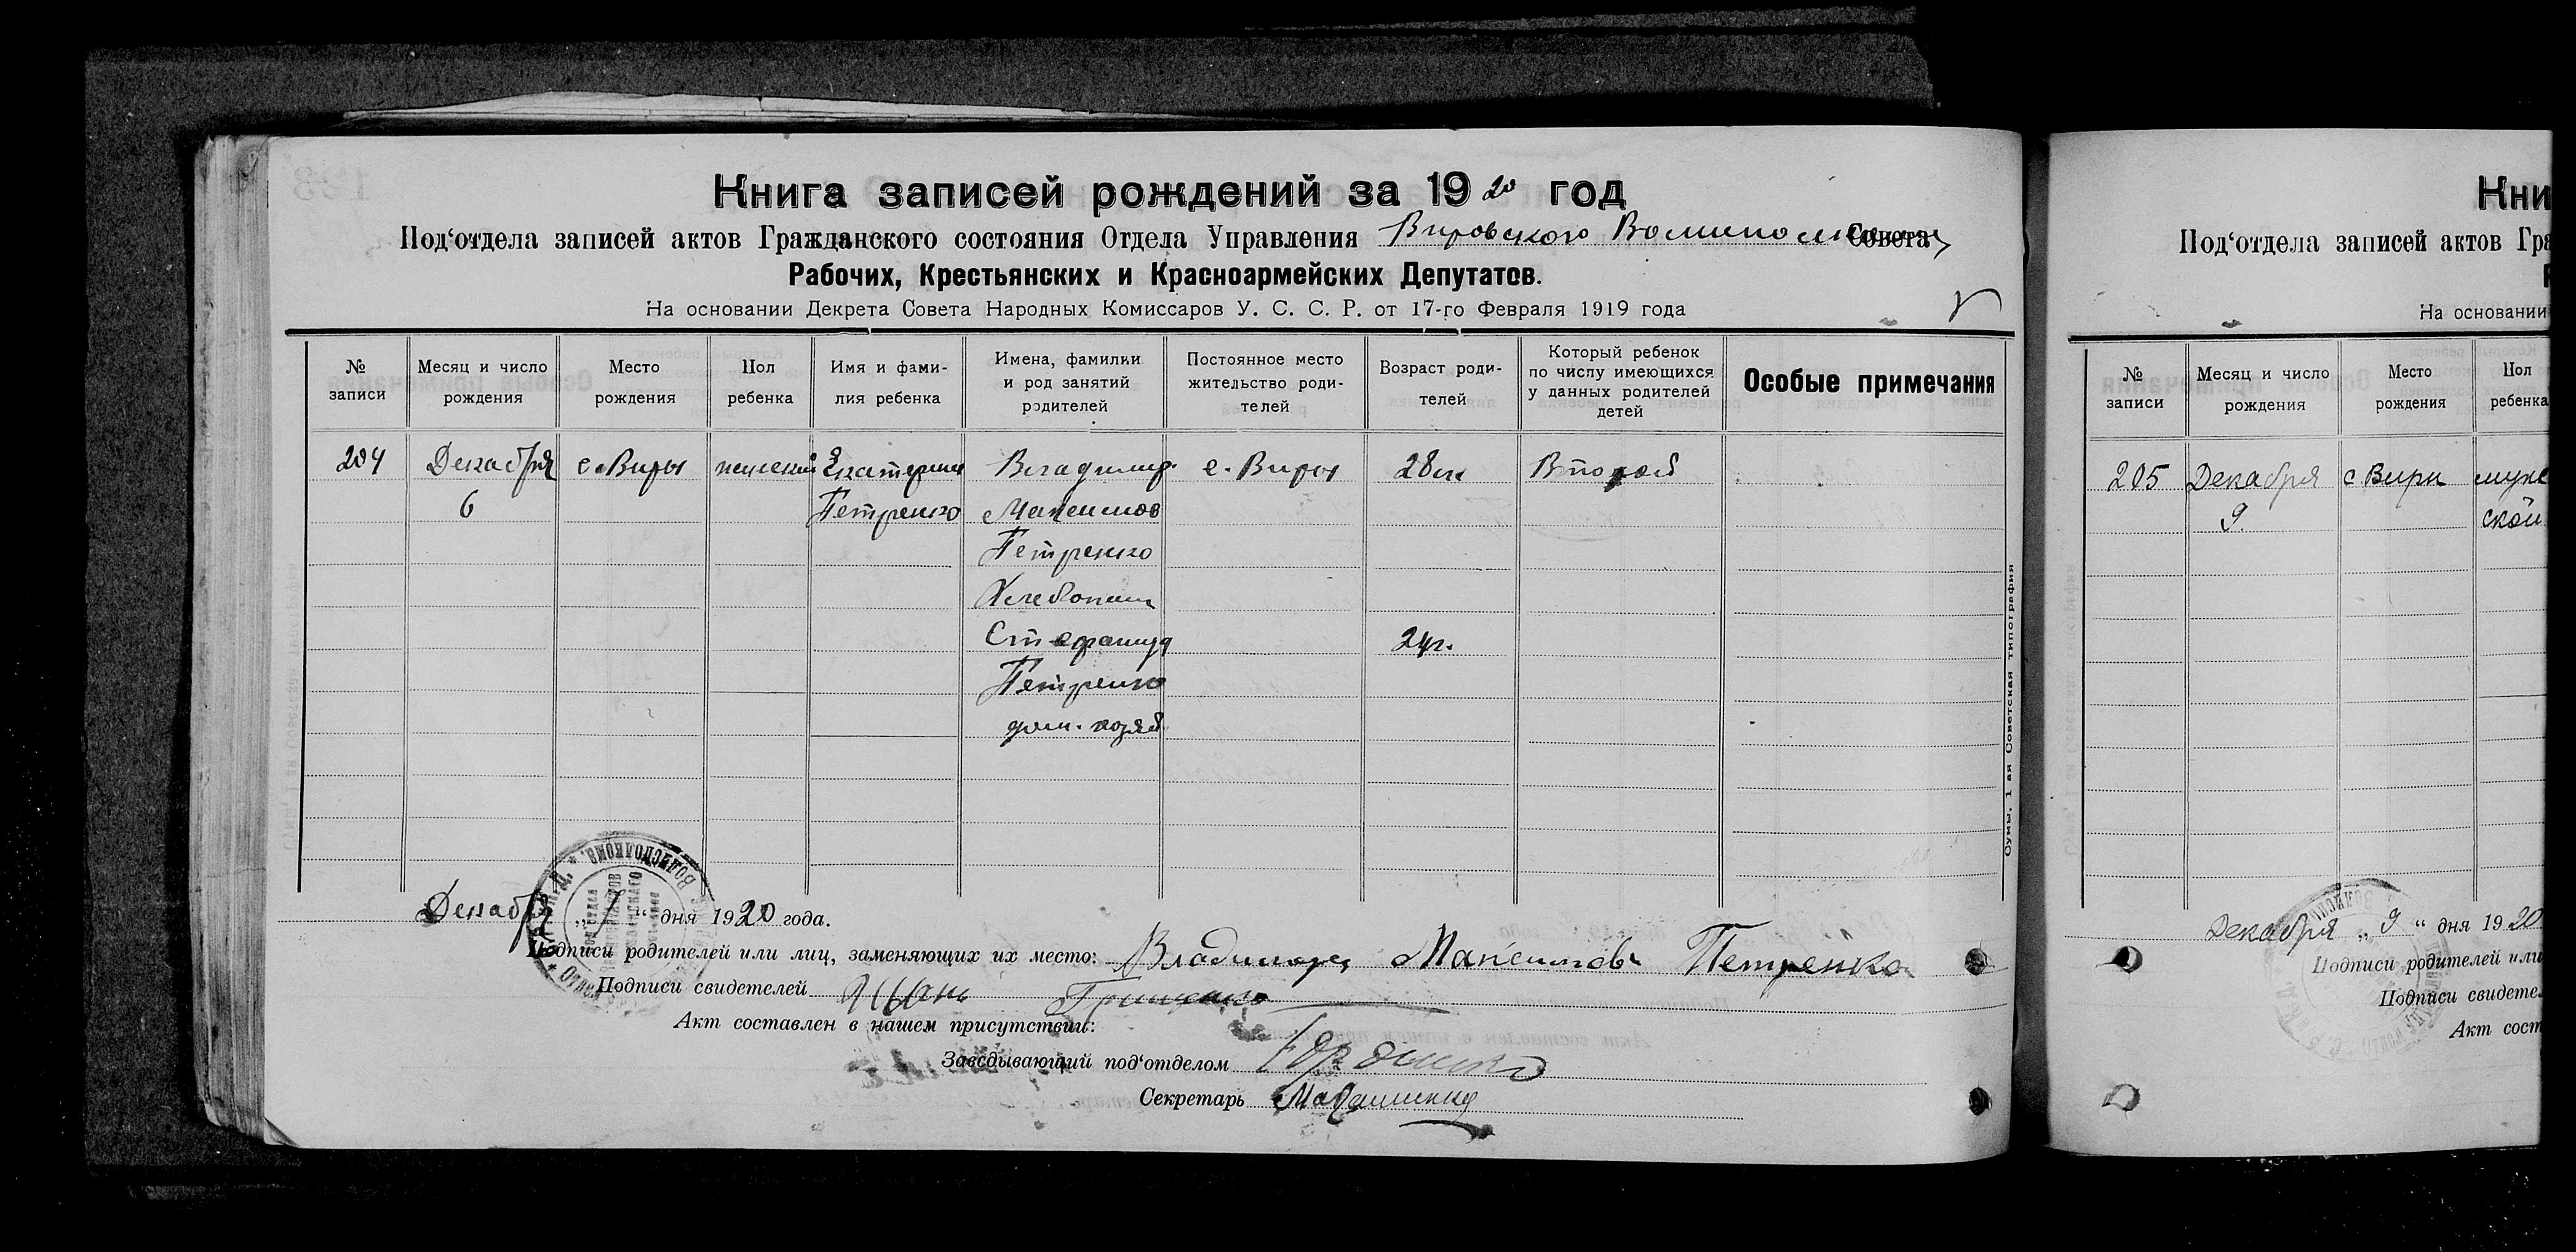 Книга записей рождений за 1920 год
Под‘отдела записей актов Гражданского состояния Отдела Управления Вировского Волисполкома Совета
Рабочих, Крестьянских и Красноармейских Депутатов.
На основании Декрета Совета Народных Комиссаров У. С. С. Р. от 17-го Февраля 1919 года
№ записи
Месяц и число рождения
Место рождения
Пол ребенка
Имя и фами-
лия ребенка
Имена, фамилии
и род занятий
родителей
Постоянное место
жительство роди-
телей
Возраст роди-
телей
Который ребенок
по числу имеющихся
у данных родителей
детей
Особые примечания
204 Декабря с. Виры женский Екатерина Владимир с. Виры 28 л. Второй
6 Петренко Максимов
Петренко
Хлебопаш
Стефанида 24 г.
Петренко
дом. хозяй
Декабря дня 1920 года.
Подписи родителей или лиц, заменяющих их место: Владимиръ Максимовъ Петренко
Подписи свидетелей Иванъ Гриценко
Акт составлен в нашем присутствии:
Заведывающий под‘отделом
Секретарь
Сумы. 1 ая Советская типография
Кни
Под‘отдела записей актов Гра
На основании
№ записи
Месяц и число рождения
Место рождения
Пол ребенка
205 Декабря с Виры муж
9. ской
Декабря „9“ дня 1920
Подписи родителей или
Подписи свидете
Акт сост